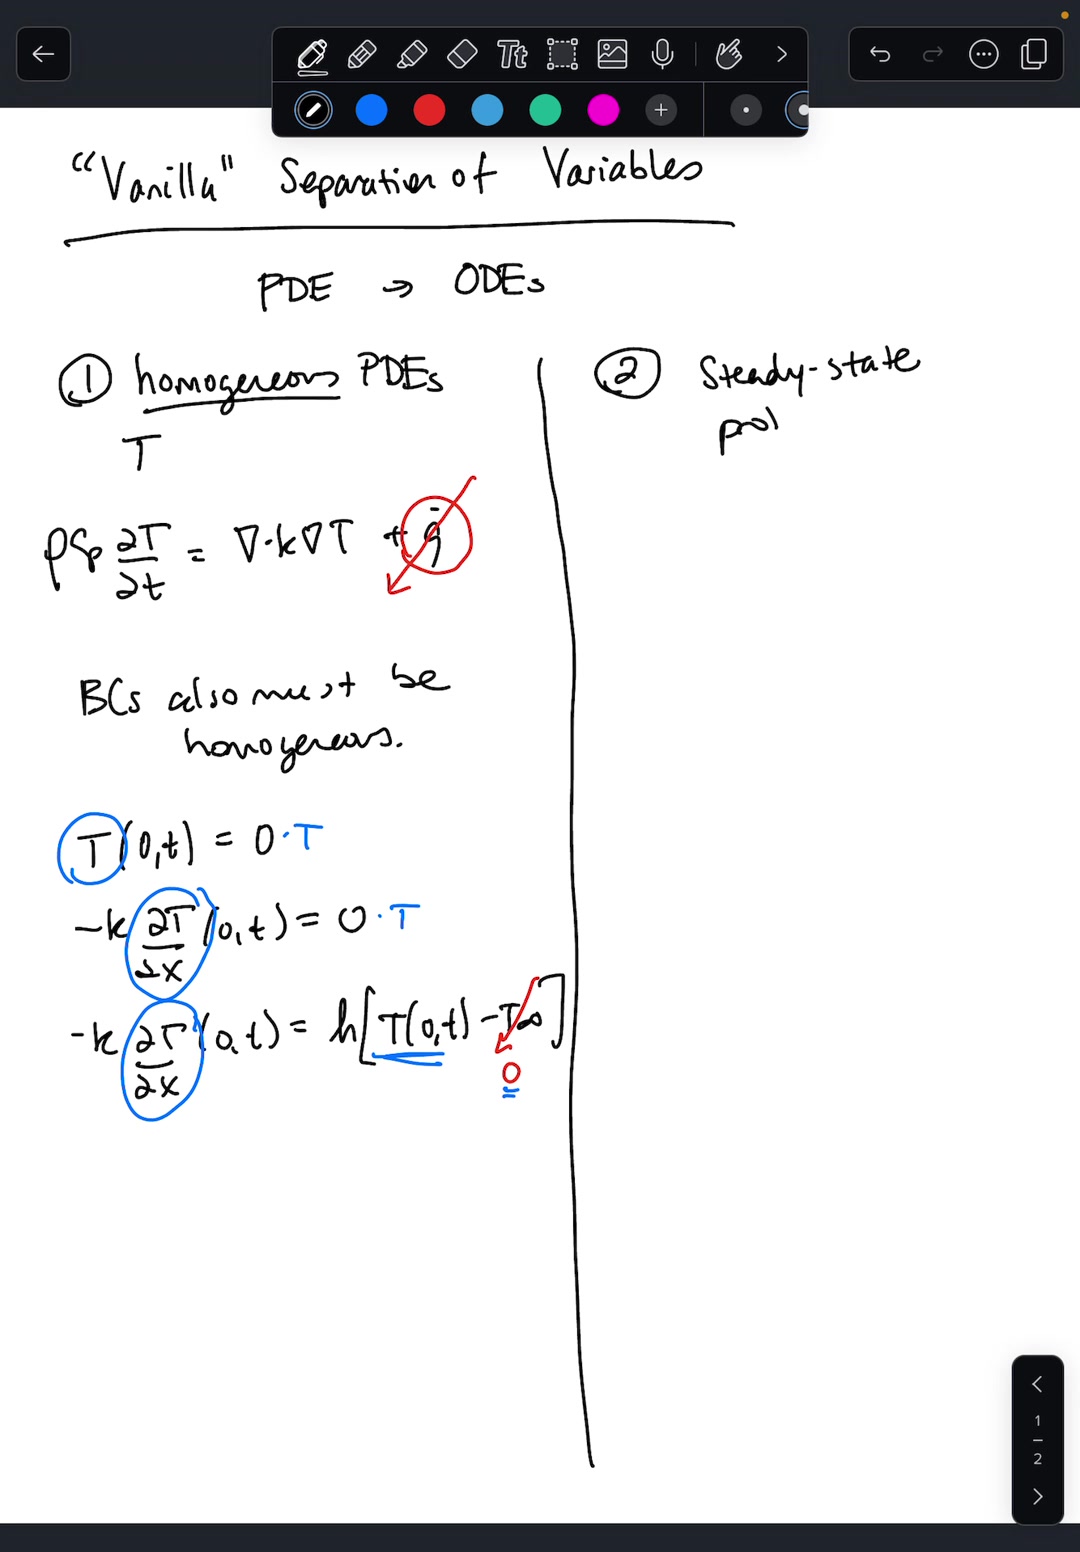 Tt
"Vanilla" Separation of Variables
PDE → ODEs
① homogeneous PDEs
T
ρCp ∂T/∂t = ∇·k∇T + q̇
BCs also must be
homogeneous.
T(0,t) = 0·T
-k ∂T/∂x (0,t) = 0·T
-k ∂T/∂x (0,t) = h[T(0,t) - T∞]
0
② Steady-state
prol
1
2